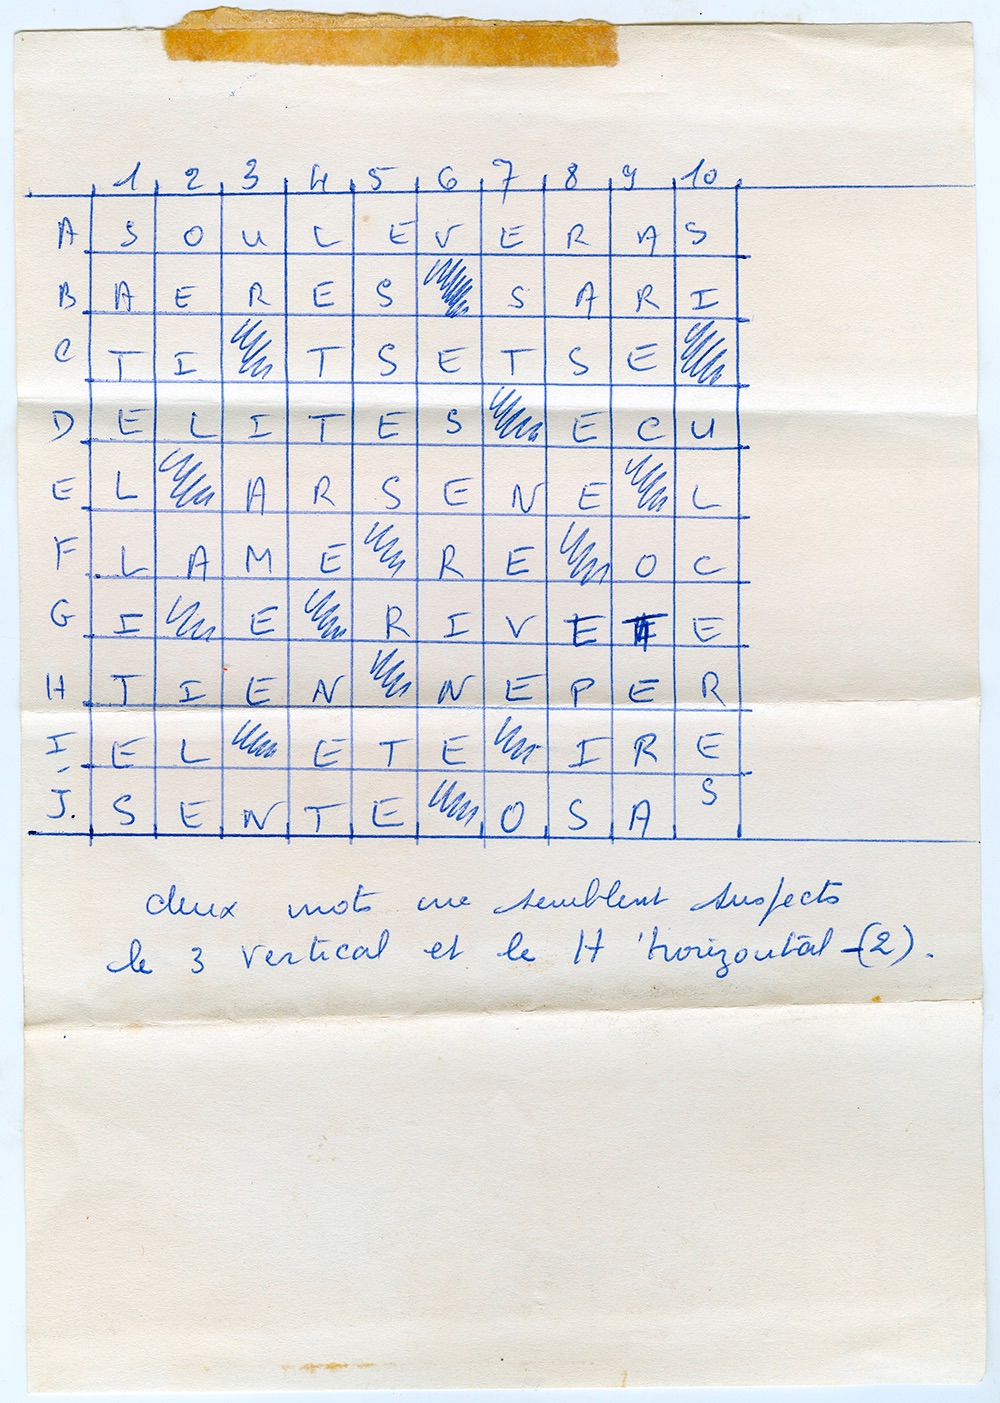 1 2 3 4 5 6 7 8 9 10
A S O U L E V E R A S
B A E R E S S A R I
C T I T S E T S E
D E L I T E S E C U
E L A R S E N E L
F L A M E R E O C
G I E R I V E T E
H T I E N N E P E R
I E L E T E I R E
J. S E N T E O S A S
deux mots me semblent suspects
le 3 vertical et le H horizontal (2).